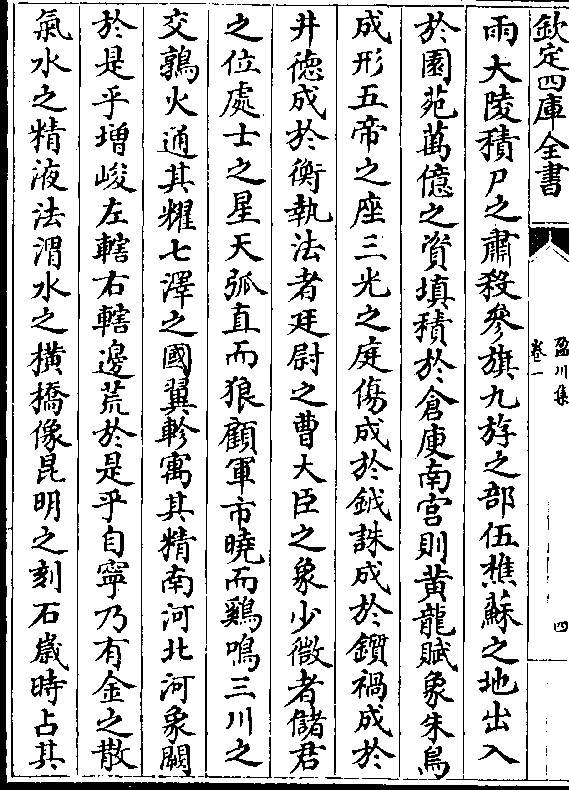 欽定四庫全書
盈川集
卷一
四
雨大陵積尸之肅殺參旗九斿之部伍樵蘇之地出入
於園苑萬億之資填積於倉庾南宫則黄龍賦象朱鳥
成形五帝之座三光之庭傷成於鉞誅成於鑕禍成於
井徳成於衡執法者廷尉之曹大臣之象少微者儲君
之位處士之星天弧直而狼顧軍市曉而鷄鳴三川之
交鶉火通其耀七澤之國翼軫寓其精南河北河象闕
於是乎増峻左轄右轄邊荒於是乎自寧乃有金之散
氣水之精液法渭水之橫橋像昆明之刻石嵗時占其